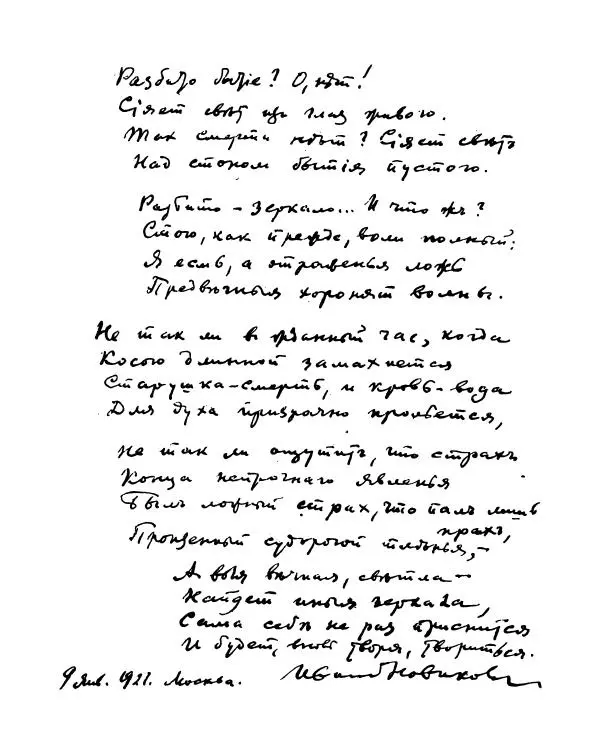 Разбито бытіе? О, нѣт!
Сіяет свѣт из глаз живою.
Так смерти нѣт? Сіяет свѣтъ
Над стоком бытія пустого.
Разбито – зеркало... И что жъ?
Стою, как прежде, воли полный:
Я есмь, а отраженья ложь
Предвѣчныя хоронят волны.
Не так ли в жданный час, когда
Косою длинной замахнется
Старушка-смерть, и кровь-вода
Для духа призрачно прольется,
Не так ли ощутить, что страхъ
Конца непрочнаго явленья
Былъ ложный страх, что палъ лишь прахъ,
Пронзенный судорогой тлѣнья, –
А воля вѣчная, свѣтла –
Найдет иныя зеркала,
Сама себѣ не раз приснится
И будет, вновь творя, твориться.
9 янв. 1921. Москва. Иван Новиков